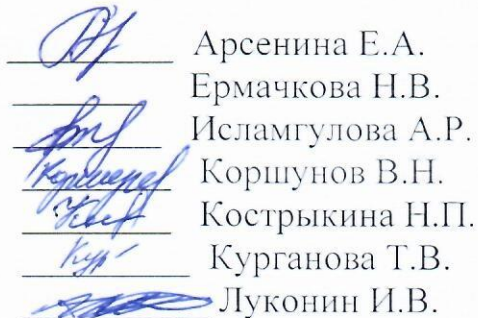 Арсенина Е.А.
Ермачкова Н.В.
Исламгулова А.Р.
Коршунов В.Н.
Кострыкина Н.П.
Курганова Т.В.
Луконин И.В.